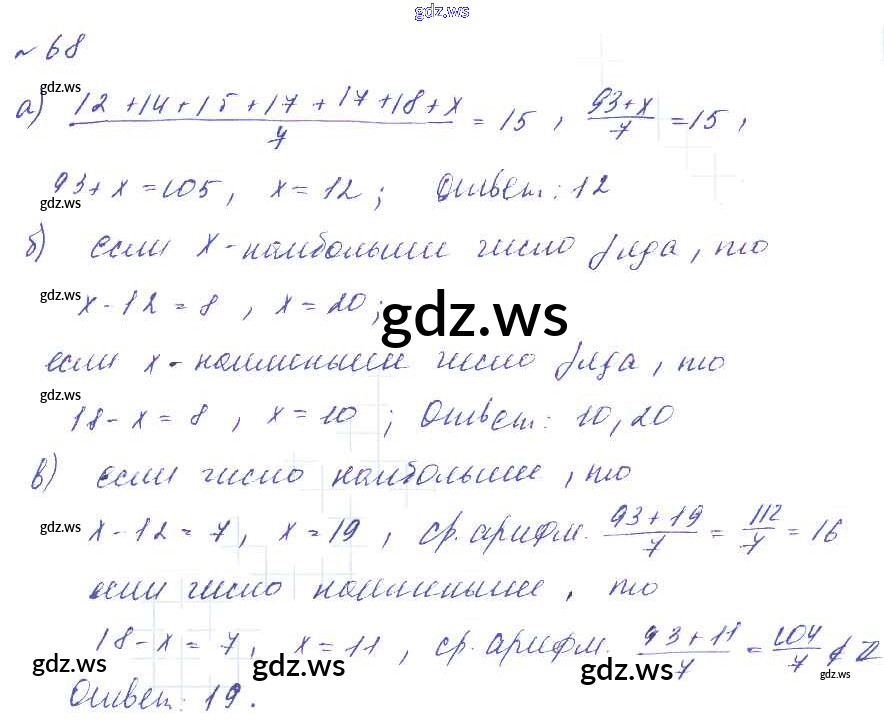 gdz.ws
№ 68
gdz.ws
а) (12+14+15+17+17+18+x)/7 = 15 , (93+x)/7 = 15 ,
93+x=105, x=12; Ответ: 12
gdz.ws
б) если x-наибольшее число ряда, то
gdz.ws
x-12=8 , x=20;
gdz.ws
если x-наименьшее число ряда, то
gdz.ws
18-x=8 , x=10 ; Ответ: 10,20
в) если число наибольшее, то
gdz.ws
x-12=7, x=19 , ср. арифм. (93+19)/7 = 112/7 = 16
если число наименьшее, то
18-x=7, x=11 , ср. арифм. (93+11)/7 = 104/7 ∉ Z
gdz.ws gdz.ws gdz.ws gdz.ws
Ответ: 19.